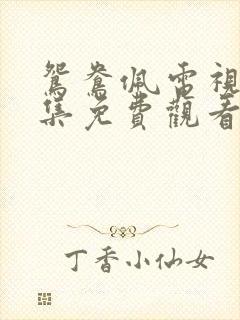 鴛鴦佩電視
集免費觀看
丁香小仙女